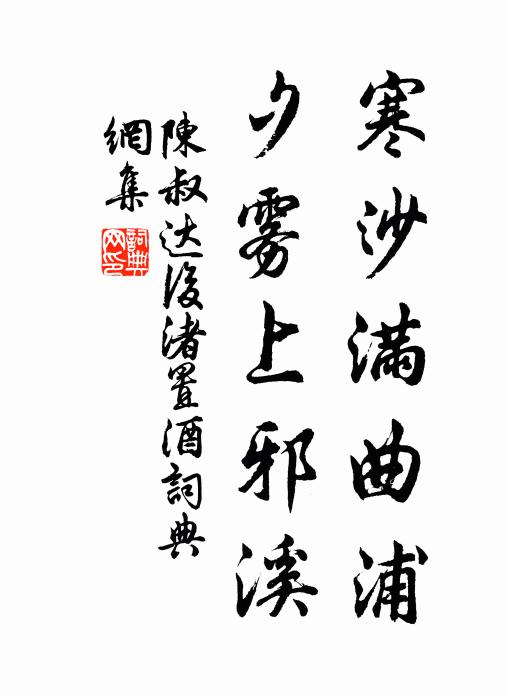 寒沙滿曲浦
夕雾上邪溪
陳叔达後渚置酒詞典
網集
詞典
网印